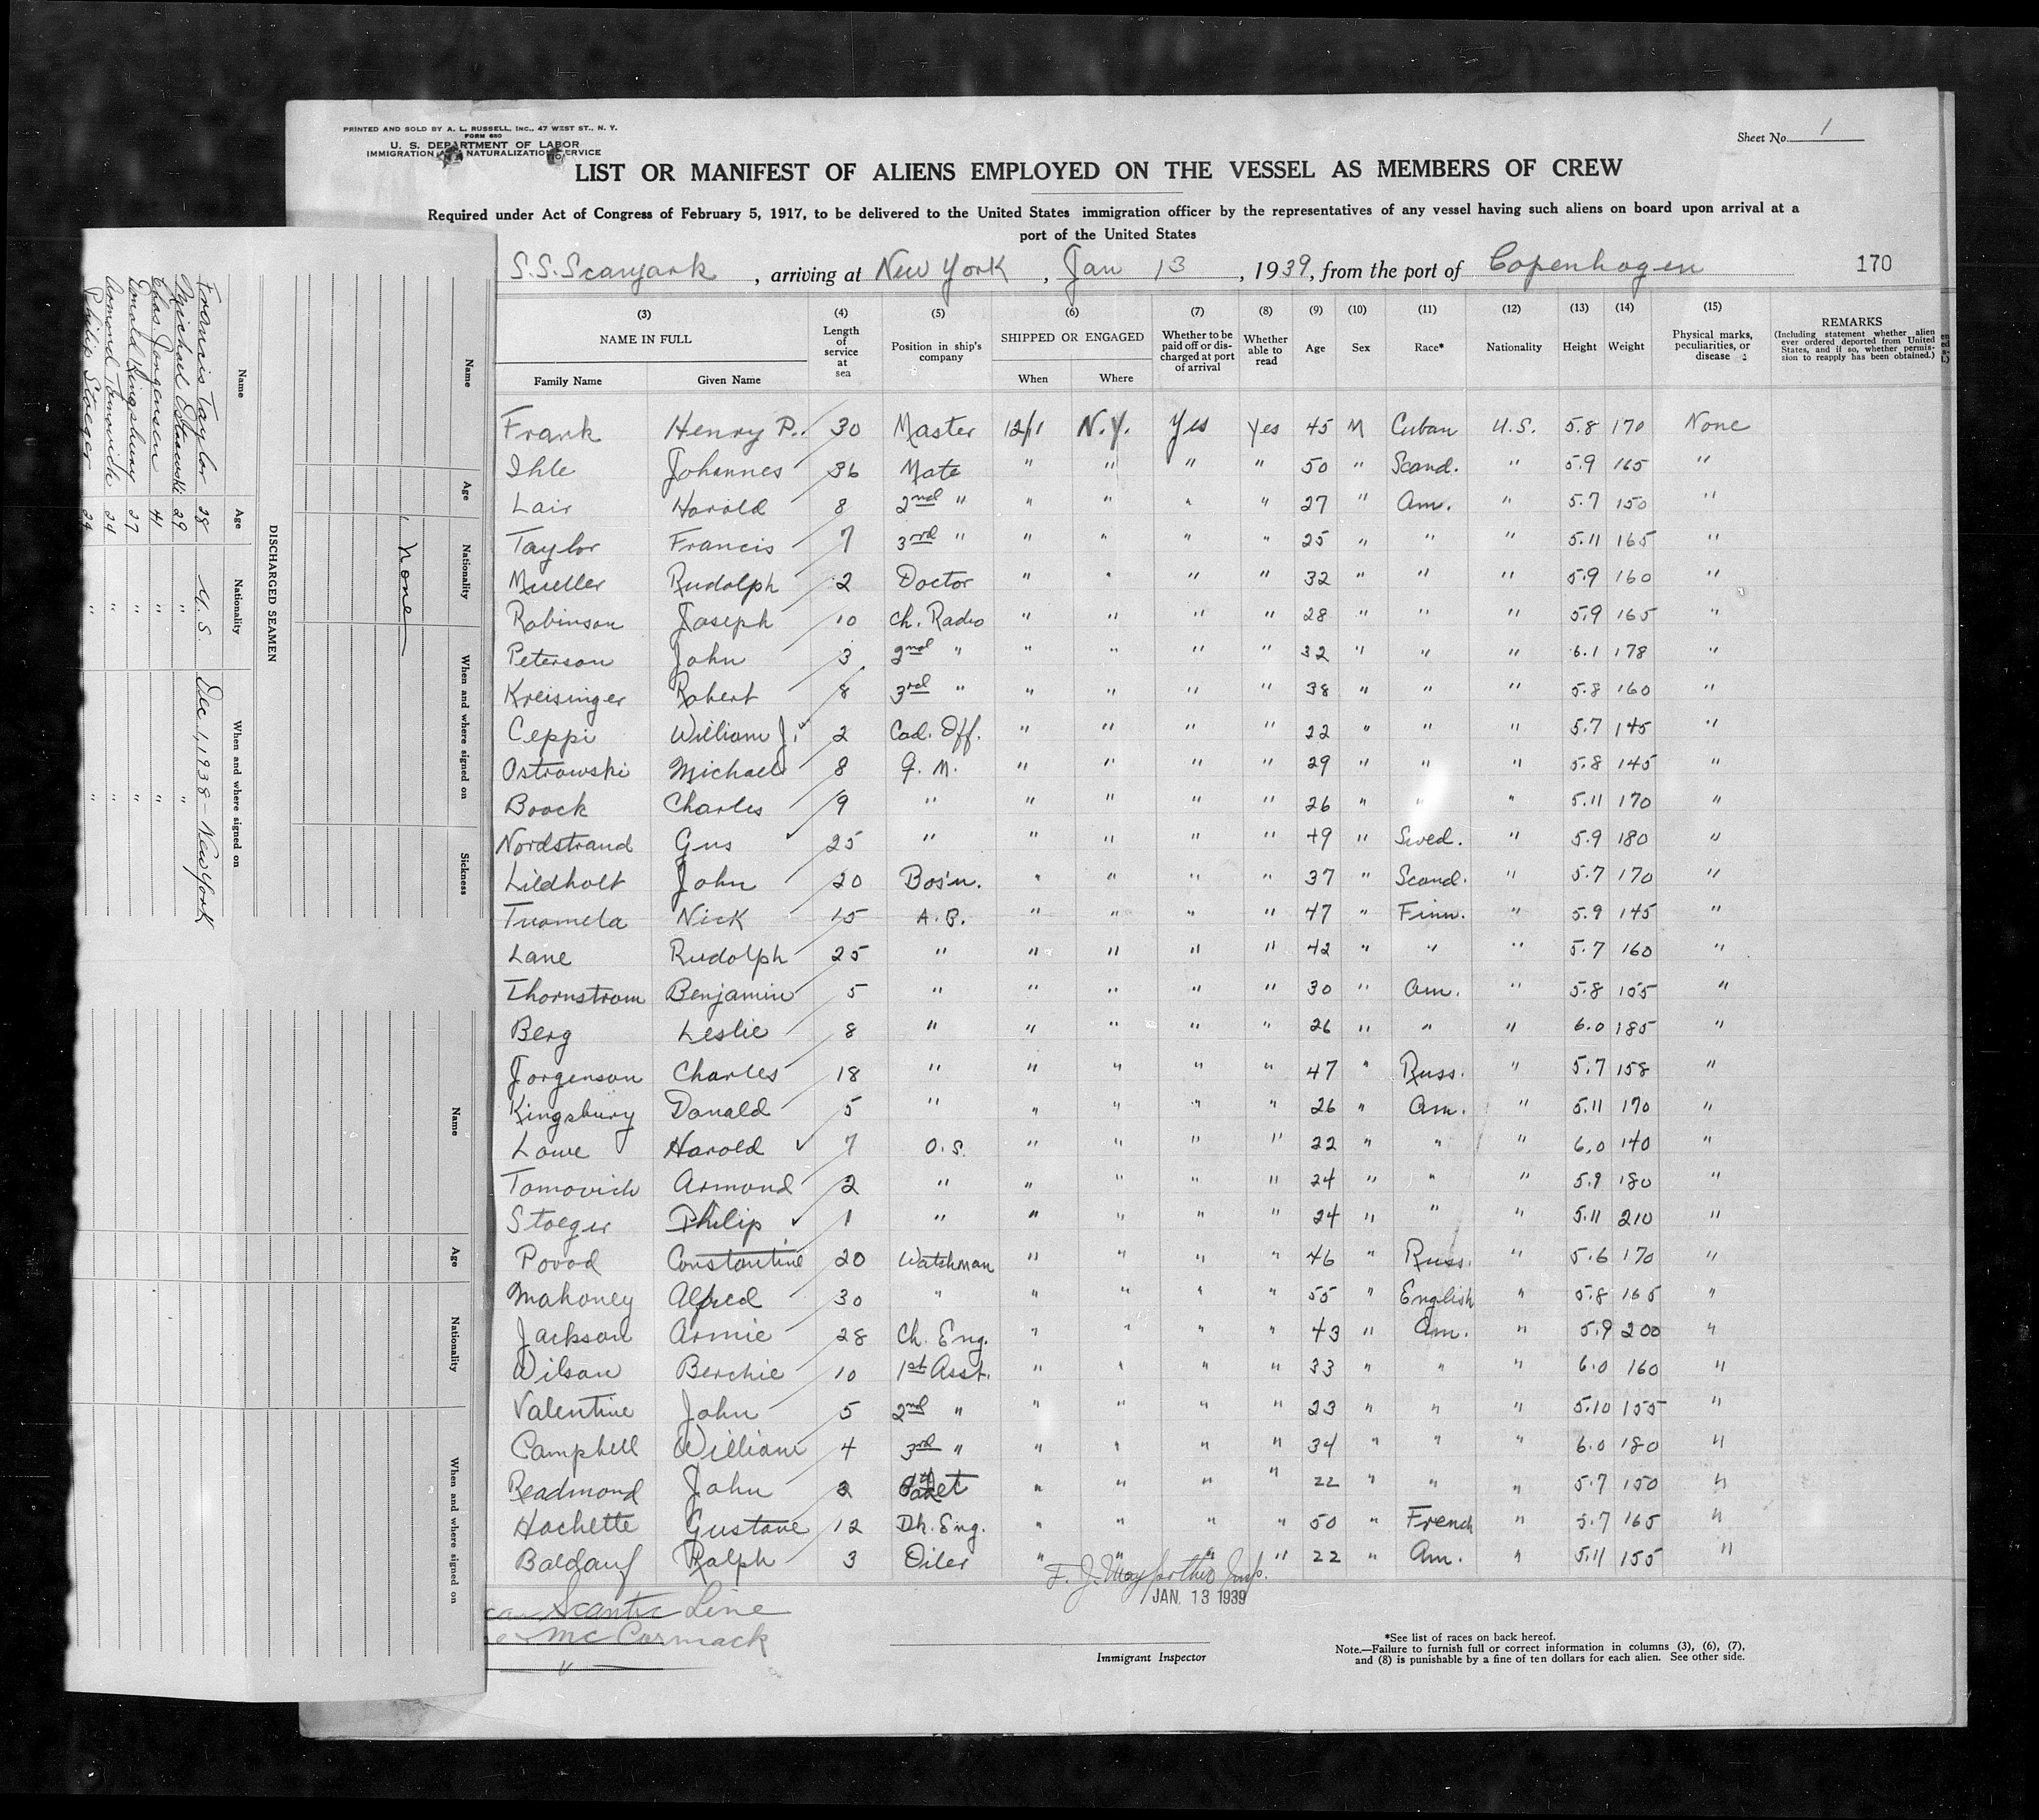 PRINTED AND SOLD BY A. L. RUSSELL, INC., 47 WEST ST., N. Y.
FORM 680
U. S. DEPARTMENT OF LABOR
IMMIGRATION AND NATURALIZATION SERVICE
Sheet No. 1
LIST OR MANIFEST OF ALIENS EMPLOYED ON THE VESSEL AS MEMBERS OF CREW
Required under Act of Congress of February 5, 1917, to be delivered to the United States immigration officer by the representatives of any vessel having such aliens on board upon arrival at a
port of the United States
S.S. Scanyork, arriving at New York, Jan 13, 1939, from the port of Copenhagen 170
(3) (4) (5) (6) (7) (8) (9) (10) (11) (12) (13) (14) (15)
NAME IN FULL Length of service at sea Position in ship's company SHIPPED OR ENGAGED Whether to be paid off or discharged at port of arrival Whether able to read Age Sex Race* Nationality Height Weight Physical marks, peculiarities, or disease REMARKS (Including statement whether alien ever ordered deported from United States, and if so, whether permission to reapply has been obtained.)
Family Name Given Name When Where
Frank Henry P. 30 Master 12/1 N.Y. Yes Yes 45 M Cuban U.S. 5.8 170 None
Ihle Johannes 36 Mate " " " " 50 " Scand. " 5.9 165 "
Lair Harold 8 2nd " " " " " 27 " Am. " 5.7 150 "
Taylor Francis 7 3rd " " " " " 25 " " " 5.11 165 "
Mueller Rudolph 2 Doctor " " " " 32 " " " 5.9 160 "
Robinson Joseph 10 Ch. Radio " " " " 28 " " " 5.9 165 "
Peterson John 3 2nd " " " " " 32 " " " 6.1 178 "
Kreisinger Robert 8 3rd " " " " " 38 " " " 5.8 160 "
Ceppi William J. 2 Cad. Off. " " " " 22 " " " 5.7 145 "
Ostrowski Michael 8 Q. M. " " " " 29 " " " 5.8 145 "
Boock Charles 9 " " " " " 26 " " " 5.11 170 "
Nordstrand Gus 25 " " " " " 49 " Swed. " 5.9 180 "
Lildholt John 20 Bos'n. " " " " 37 " Scand. " 5.7 170 "
Tuomela Nick 15 A. B. " " " " 47 " Finn. " 5.9 145 "
Lane Rudolph 25 " " " " " 42 " " " 5.7 160 "
Thornstrom Benjamin 5 " " " " " 30 " Am. " 5.8 155 "
Berg Leslie 8 " " " " " 26 " " " 6.0 185 "
Jorgenson Charles 18 " " " " " 47 " Russ. " 5.7 158 "
Kingsbury Donald 5 " " " " " 26 " Am. " 5.11 170 "
Lowe Harold 7 O. S. " " " " 22 " " " 6.0 140 "
Tomovich Armond 2 " " " " " 24 " " " 5.9 180 "
Stoeger Philip 1 " " " " " 24 " " " 5.11 210 "
Povod Constantine 20 Watchman " " " " 46 " Russ. " 5.6 170 "
Mahoney Alfred 30 " " " " " 55 " English " 5.8 165 "
Jackson Armie 28 Ch. Eng. " " " " 43 " Am. " 5.9 200 "
Wilson Berchie 10 1st Asst. " " " " 33 " " " 6.0 160 "
Valentine John 5 2nd " " " " " 23 " " " 5.10 155 "
Campbell William 4 3rd " " " " " 34 " " " 6.0 180 "
Readmond John 2 Cadet " " " " 22 " " " 5.7 150 "
Hachette Gustave 12 Dk. Eng. " " " " 50 " French " 5.7 165 "
Baldauf Ralph 3 Oiler " " " " 22 " Am. " 5.11 155 "
Scantic Line
McCormack
"
JAN. 13 1939
Immigrant Inspector
*See list of races on back hereof.
Note.—Failure to furnish full or correct information in columns (3), (6), (7),
and (8) is punishable by a fine of ten dollars for each alien. See other side.
Name Age Nationality When and where signed on Sickness
None
DISCHARGED SEAMEN
Name Age Nationality When and where signed on
Francis Taylor 28 U. S. Dec. 1, 1938 - New York
Michael Ostrowski 29 " "
Chas. Jorgensen 41 " "
Donald Kingsbury 27 " "
Armond Tomovich 24 " "
Philip Stoeger 24 " "
Name Age Nationality When and where signed on